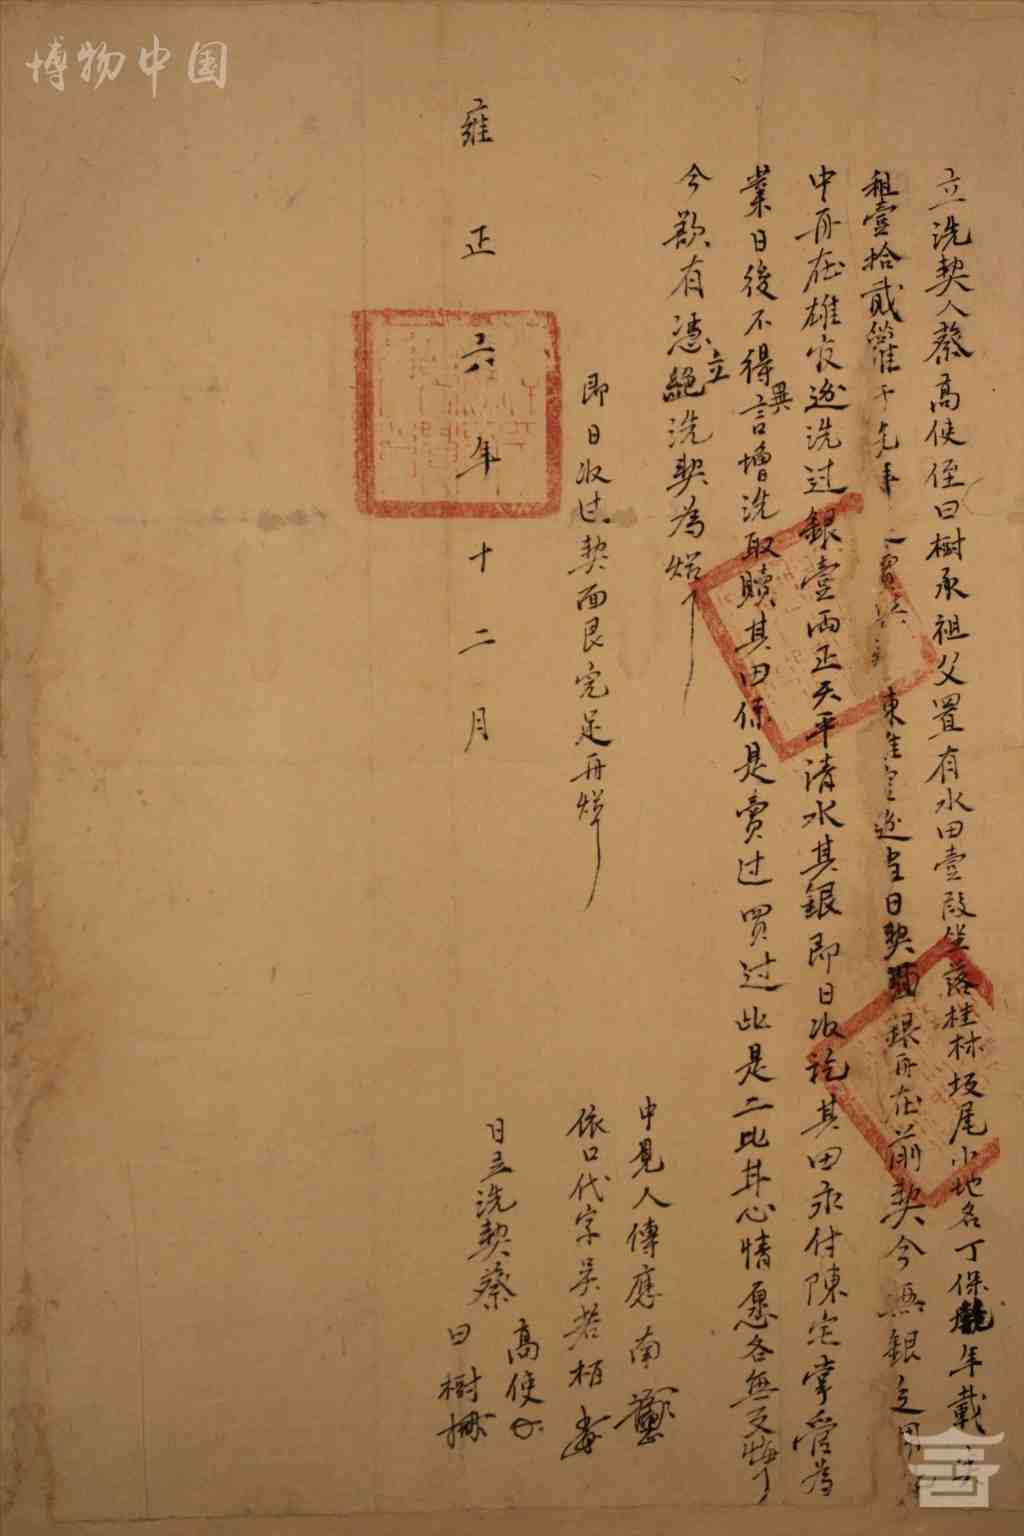 立洗契人蔡高使侄曰樹承祖父置有水田壹段坐落桂林坂尾小地名丁保 年載
租壹拾貳 于先年 賣與 東隹 邊當日契面銀再在前契今無銀之用
中再在雄官邊洗过銀壹兩正天平清水其銀即日收訖其田永付陳宅掌管為
業日後不得異言增洗取贖其田係是賣过買过此是二比甘心情愿各無反悔
今欲有憑立絕洗契為炤
即日收过契面艮完足再炤
中見人傳應南
依口代字吳若柏
雍正六年十二月
日立洗契蔡
高使
曰樹
博物中国